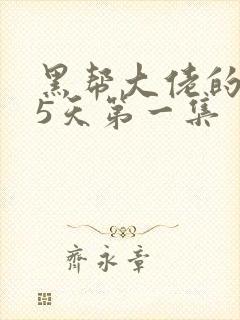 黑帮大佬的
5天第一集
齐永章